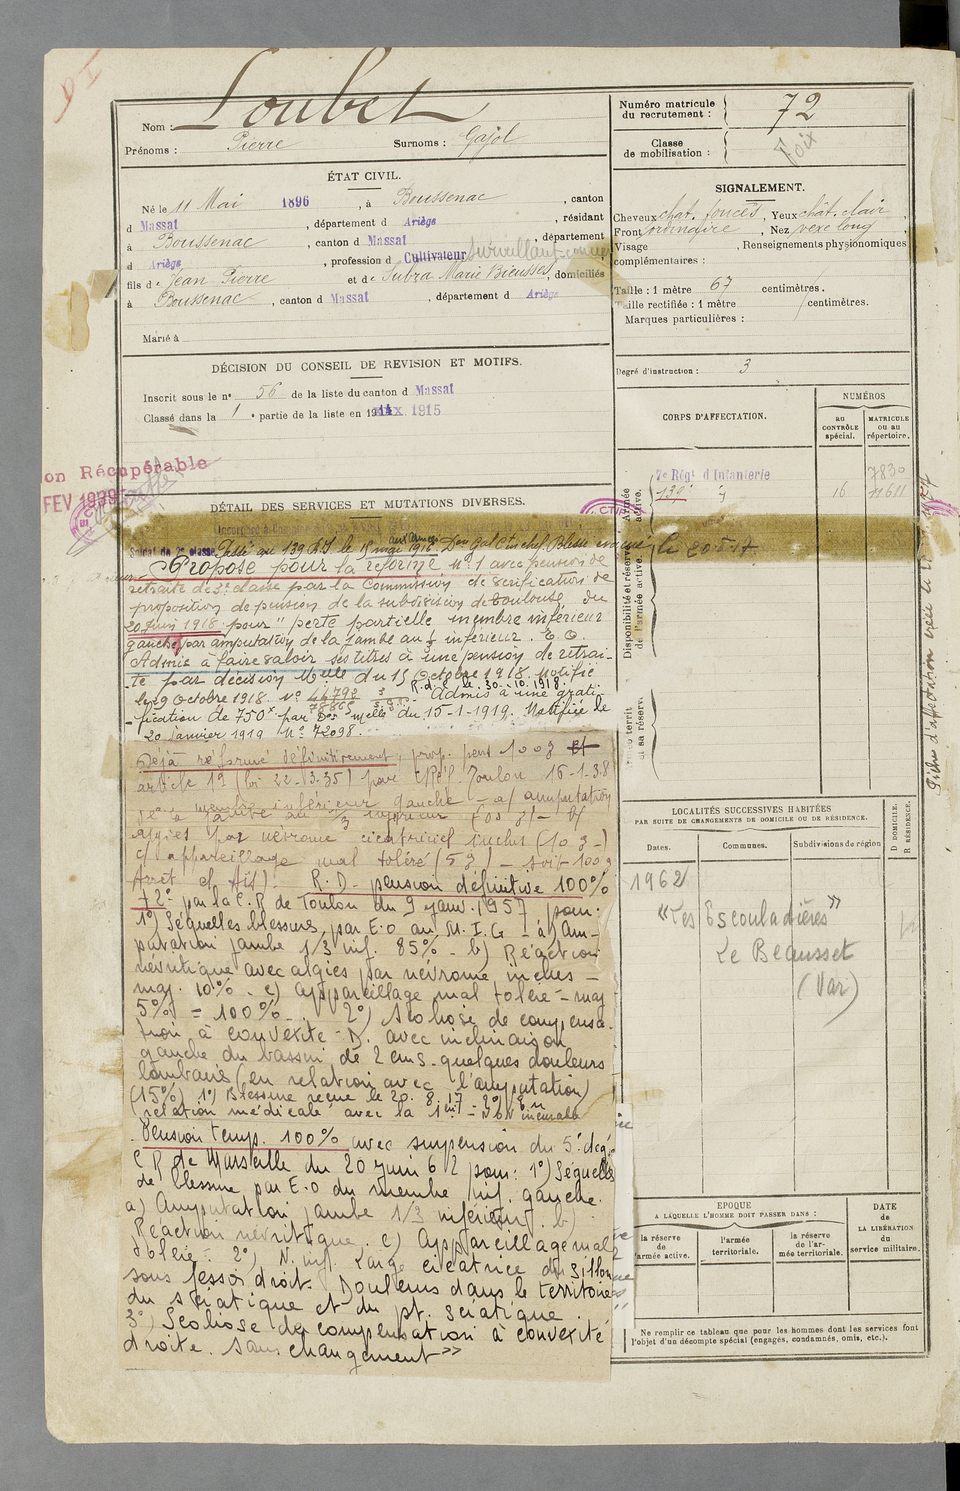 Nom : Loubet
Prénoms : Pierre Surnoms : Gajol
ÉTAT CIVIL.
Né le 11 Mai 1896, à Boussenac, canton
d Massat, département d Ariège, résidant
à Boussenac, canton d Massat, département
d Ariège, profession d Cultivateur
fils de Jean Pierre et de Subra Marie, domiciliés
à Boussenac, canton d Massat, département d Ariège
Marié à
DÉCISION DU CONSEIL DE REVISION ET MOTIFS.
Inscrit sous le n° 56 de la liste du canton d Massat
Classé dans la 1e partie de la liste en 1915
on Récupérable
FEV 1939
DÉTAIL DES SERVICES ET MUTATIONS DIVERSES.
Soldat de 2e classe Passé au 139 RI le 15 mai 1916 aux Armées
Proposé pour la réforme N°1 avec pension de
retraite de 3e classe par la Commission de vérification de
proposition de pension de la subdivision de Toulouse du
20 Juin 1918 pour "perte partielle membre inférieur
gauche par amputation de la jambe au 1/3 inférieur. E.O.
Admis à faire valoir ses titres à une pension de retrai-
te par décision Mlle du 15 octobre 1918. Notifié
le 29 octobre 1918. N° 44792 R.d. le 30-10-1918. Admis à une grati-
fication de 750f par Don mlle du 15-1-1919. Notifiée le
20 janvier 1919 N° 72098.
Déjà réformé définitivement, prop. pens 100%
article 1er (loi 22-3-35) par CRéf. Toulon 16-1-38
membre inférieur gauche - a/ amputation
algies par névrome cicatriciel inclus (10%)
c/ appareillage mal toléré (5%) - soit 100%
R.D. pension définitive 100%
+2° par la C.R de Toulon du 9 janv. 1957 pour:
1°) Séquelles blessure, par E.O au M.I.G - a) Am-
putation jambe 1/3 inf. 85% - b) Réaction
névritique avec algies par névrome inclus -
maj. 10% - c) appareillage mal toléré - maj
5% = 100% - 2°) Scoliose de compensa-
tion à convexité D. avec inclinaison
gauche du bassin de 2 cms. quelques douleurs
lombaires (en relation avec l'amputation)
(15%) 1°) Blessure reçue le 20.8.17 - 2°) En
relation médicale avec la 1ère - Non
Pension temp. 100% avec suspension du 5e deg.
C R de Marseille du 20 juin 62 pour: 1°) Séquelles
de blessure par E.O du membre inf. gauche.
a) Amputation jambe 1/3 inférieur. b)
Réaction névritique. c) Appareillage mal
toléré. 2°) M. inf. Large cicatrice du sillon
sous fessier droit. Douleurs dans le territoire
du sciatique et du pt. sciatique.
3°) Scoliose de compensation à convexité
droite. Sans changement"
Numéro matricule du recrutement : 72
Classe de mobilisation :
Foix
SIGNALEMENT.
Cheveux chat. foncés, Yeux chât. clair,
Front ordinaire, Nez vexe long,
Visage , Renseignements physionomiques
complémentaires :
Taille : 1 mètre 67 centimètres.
Taille rectifiée : 1 mètre centimètres.
Marques particulières :
Degré d'instruction : 3
CORPS D'AFFECTATION.
NUMÉROS
au CONTRÔLE spécial.
MATRICULE ou au répertoire.
Disponibilité et réserve de l'armée active.
Armée active.
7e Régt d'Infanterie 7830
139e 16 11611
LOCALITÉS SUCCESSIVES HABITÉES
PAR SUITE DE CHANGEMENTS DE DOMICILE OU DE RÉSIDENCE.
Dates. Communes. Subdivisions de région
D DOMICILE.
R RÉSIDENCE.
1962
"Les Escouladières"
Le Beausset
(Var)
EPOQUE
A LAQUELLE L'HOMME DOIT PASSER DANS :
la réserve de l'armée active.
l'armée territoriale.
la réserve de l'armée territoriale.
DATE de LA LIBÉRATION du service militaire.
Ne remplir ce tableau que pour les hommes dont les services font
l'objet d'un décompte spécial (engagés, condamnés, omis, etc.).